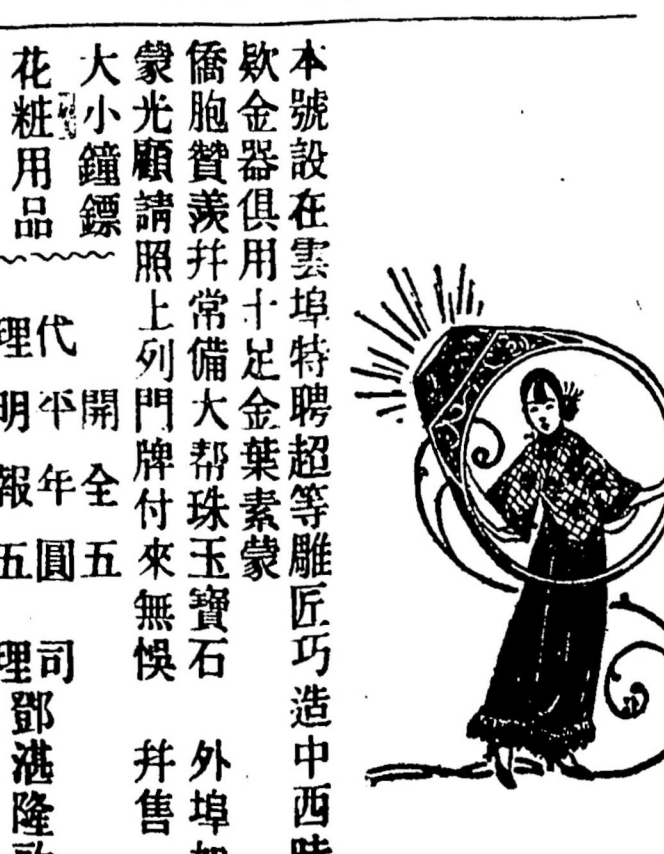 本號設在雲埠特聘超等雕匠巧造中西時
欵金器俱用十足金葉素蒙
僑胞贊羨幷常備大帮珠玉寶石 外埠如
蒙光顧請照上列門牌付來無悞 幷售
大小鐘鏢
花粧用品
開全五
代平年圓
理明報五
司
理
鄧湛隆